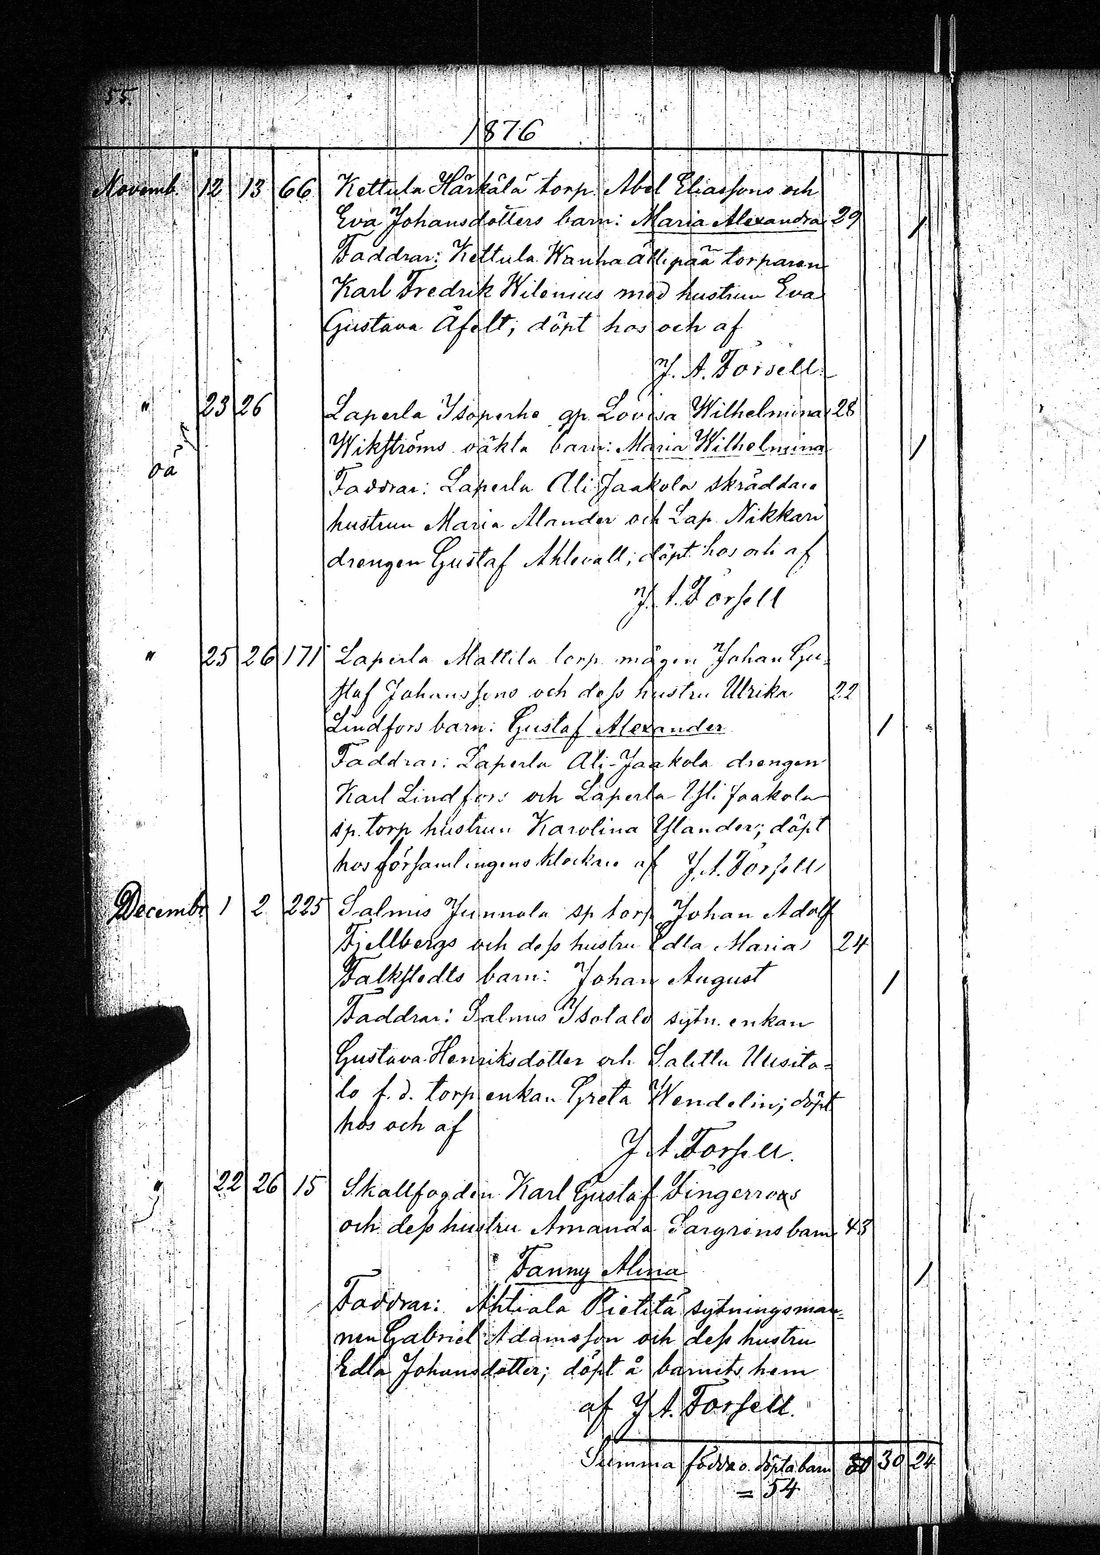 55.
1876
Novemb. 12 13 66 Kettula Härkälä torp. Abel Eliassons och
Eva Johansdotters barn: Maria Alexandra 29 1
Faddrar: Kettula Wanha Ällipää torparen
Karl Fredrik Wilenius med hustrun Eva
Gustava Åfelt; döpt hos och af
J. A. Forsell.
" 23 26 Laperla Isoperhe gp. Lovisa Wilhelmina 28
oä Wikströms oäkta barn: Maria Wilhelmina 1
Faddrar: Laperla Ali Jaakola skräddare
hustrun Maria Alander och Lap. Nikkari
drengen Gustaf Ahlevall; döpt hos och af
J. A. Forsell
" 25 26 171 Laperla Mattila torp. mågen Johan Gu-
staf Johanssons och dess hustru Ulrika 22
Lindfors barn: Gustaf Alexander 1
Faddrar: Laperla Ali-Jaakola drengen
Karl Lindfors och Laperla Yli Jaakola
sp. torp hustrun Karolina Ylander; döpt
hos församlingens klockare af J. A. Forsell
Decembr 1 2 225 Salmis Junnola sp torp Johan Adolf
Fjellbergs och dess hustru Edla Maria 24
Falkstedts barn: Johan August 1
Faddrar: Salmis Isotalo sytn. enkan
Gustava Henriksdotter och Salittu Uusita-
lo f. d. torp enkan Greta Wendelin; döpt
hos och af
J A Forsell.
" 22 26 15 Skallfogden Karl Gustaf Fingerroos
och dess hustru Amanda Sargrens barn 43
Fanny Alina 1
Faddrar: Ahtiala Pietilä sytningsman-
nen Gabriel Adamsson och dess hustru
Edla Johansdotter; döpt å barnets hem
af J A. Forsell.
Summa födda o. döpta barn 30 24
= 54